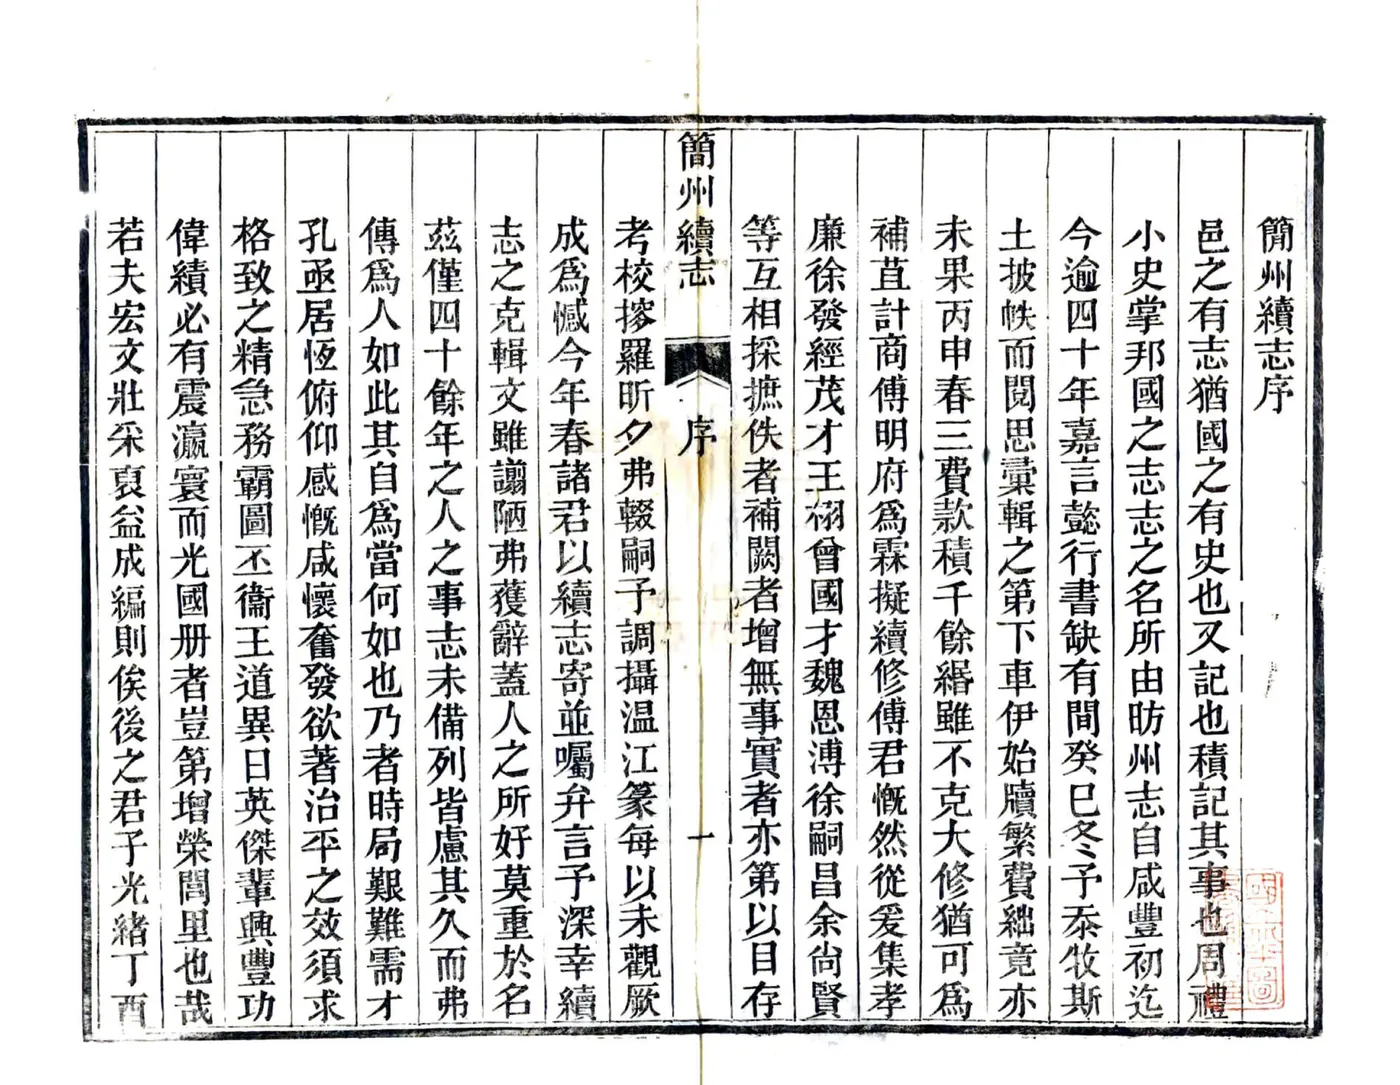 簡州續志序
邑之有志猶國之有史也又記也積記其事也周禮
小史掌邦國之志志之名所由昉州志自咸豐初迄
今逾四十年嘉言懿行書缺有間癸巳冬予忝牧斯
土披帙而閱思彙輯之第下車伊始牘繁費絀竟亦
未果丙申春三費款積千餘緡雖不克大修猶可為
補苴計商傅明府為霖擬續修傅君慨然從爰集孝
廉徐發經茂才王栩曾國才魏恩溥徐嗣昌余尙賢
等互相採摭佚者補闕者增無事實者亦第以目存
簡州續志
序
一
考校搜羅昕夕弗輟嗣予調攝温江篆每以未觀厥
成為憾今年春諸君以續志寄並囑弁言予深幸續
志之克輯文雖譾陋弗獲辭蓋人之所好莫重於名
茲僅四十餘年之人之事志未備列皆慮其久而弗
傳爲人如此其自爲當何如也乃者時局艱難需才
孔亟居恆俯仰感慨咸懷奮發欲著治平之效須求
格致之精急務霸圖丕衞王道異日英傑輩興豐功
偉績必有震瀛寰而光國册者豈第增榮閭里也哉
若夫宏文壯采裒益成編則俟後之君子光緒丁酉